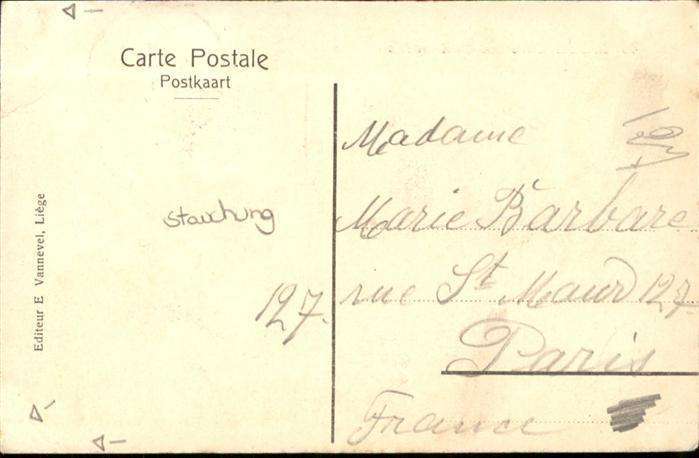 Carte Postale
Postkaart
Editeur E Vannevel, Liège
stauchung
127.
Madame
Marie Barbare
rue St Maur 127.
Paris
France